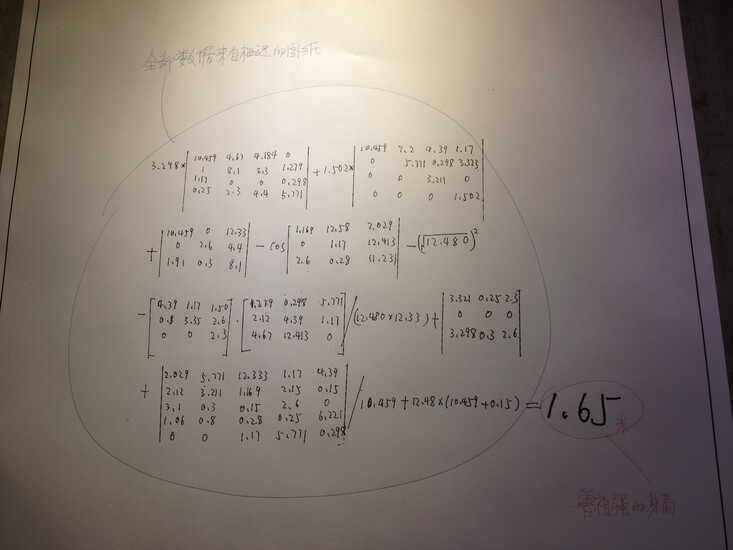 全部数据来自柏运的图纸
3.298× | 10.459 4.67 4.184 0 | +1.502× | 10.459 7.2 4.39 1.17 |
| 1 8.1 3.3 1.279 | | 0 5.771 0.298 3.323 |
| 1.17 0 0 0.298 | | 0 0 3.211 0 |
| 0.25 2.3 4.4 5.771 | | 0 0 0 1.502 |
+ | 10.459 0 12.33 | - cos | 1.169 12.58 2.029 | - (√12.480)²
| 0 2.6 4.4 | | 0 1.17 12.413 |
| 1.91 0.3 8.1 | | 2.6 0.28 11.231 |
- [ 4.39 1.17 1.50 ] · [ 4.239 0.298 5.771 ] / (12.480×12.33) + | 3.321 0.25 2.3 |
[ 0.8 3.35 2.6 ] [ 2.12 4.39 1.17 ] | 0 0 0 |
[ 0 0 2.3 ] [ 4.67 12.413 0 ] | 3.298 0.3 2.6 |
+ | 2.029 5.771 12.333 1.17 4.39 |
| 2.12 3.211 1.169 2.15 0.15 |
| 3.1 0.3 0.15 2.6 0 | / 10.459+12.48×(10.459+0.15) = 1.65米
| 1.06 0.8 0.28 0.25 6.221 |
| 0 0 1.17 5.771 0.298 |
曾祖强的身高